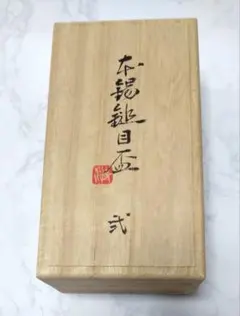 本錫鎚目盃
弐